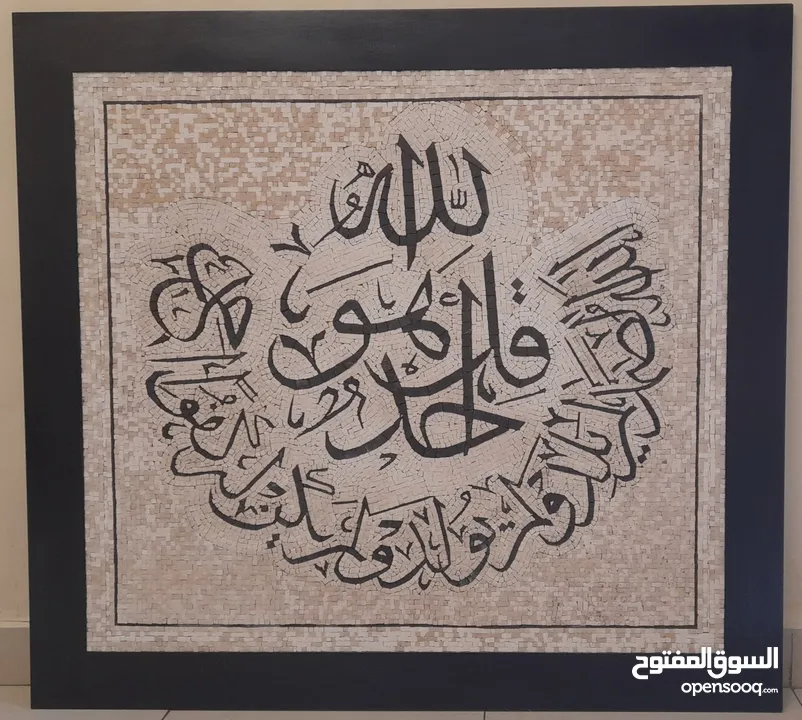 قل هو الله أحد
الله الصمد لم يلد ولم يولد ولم يكن له كفوا أحد
السوق المفتوح
opensooq.com